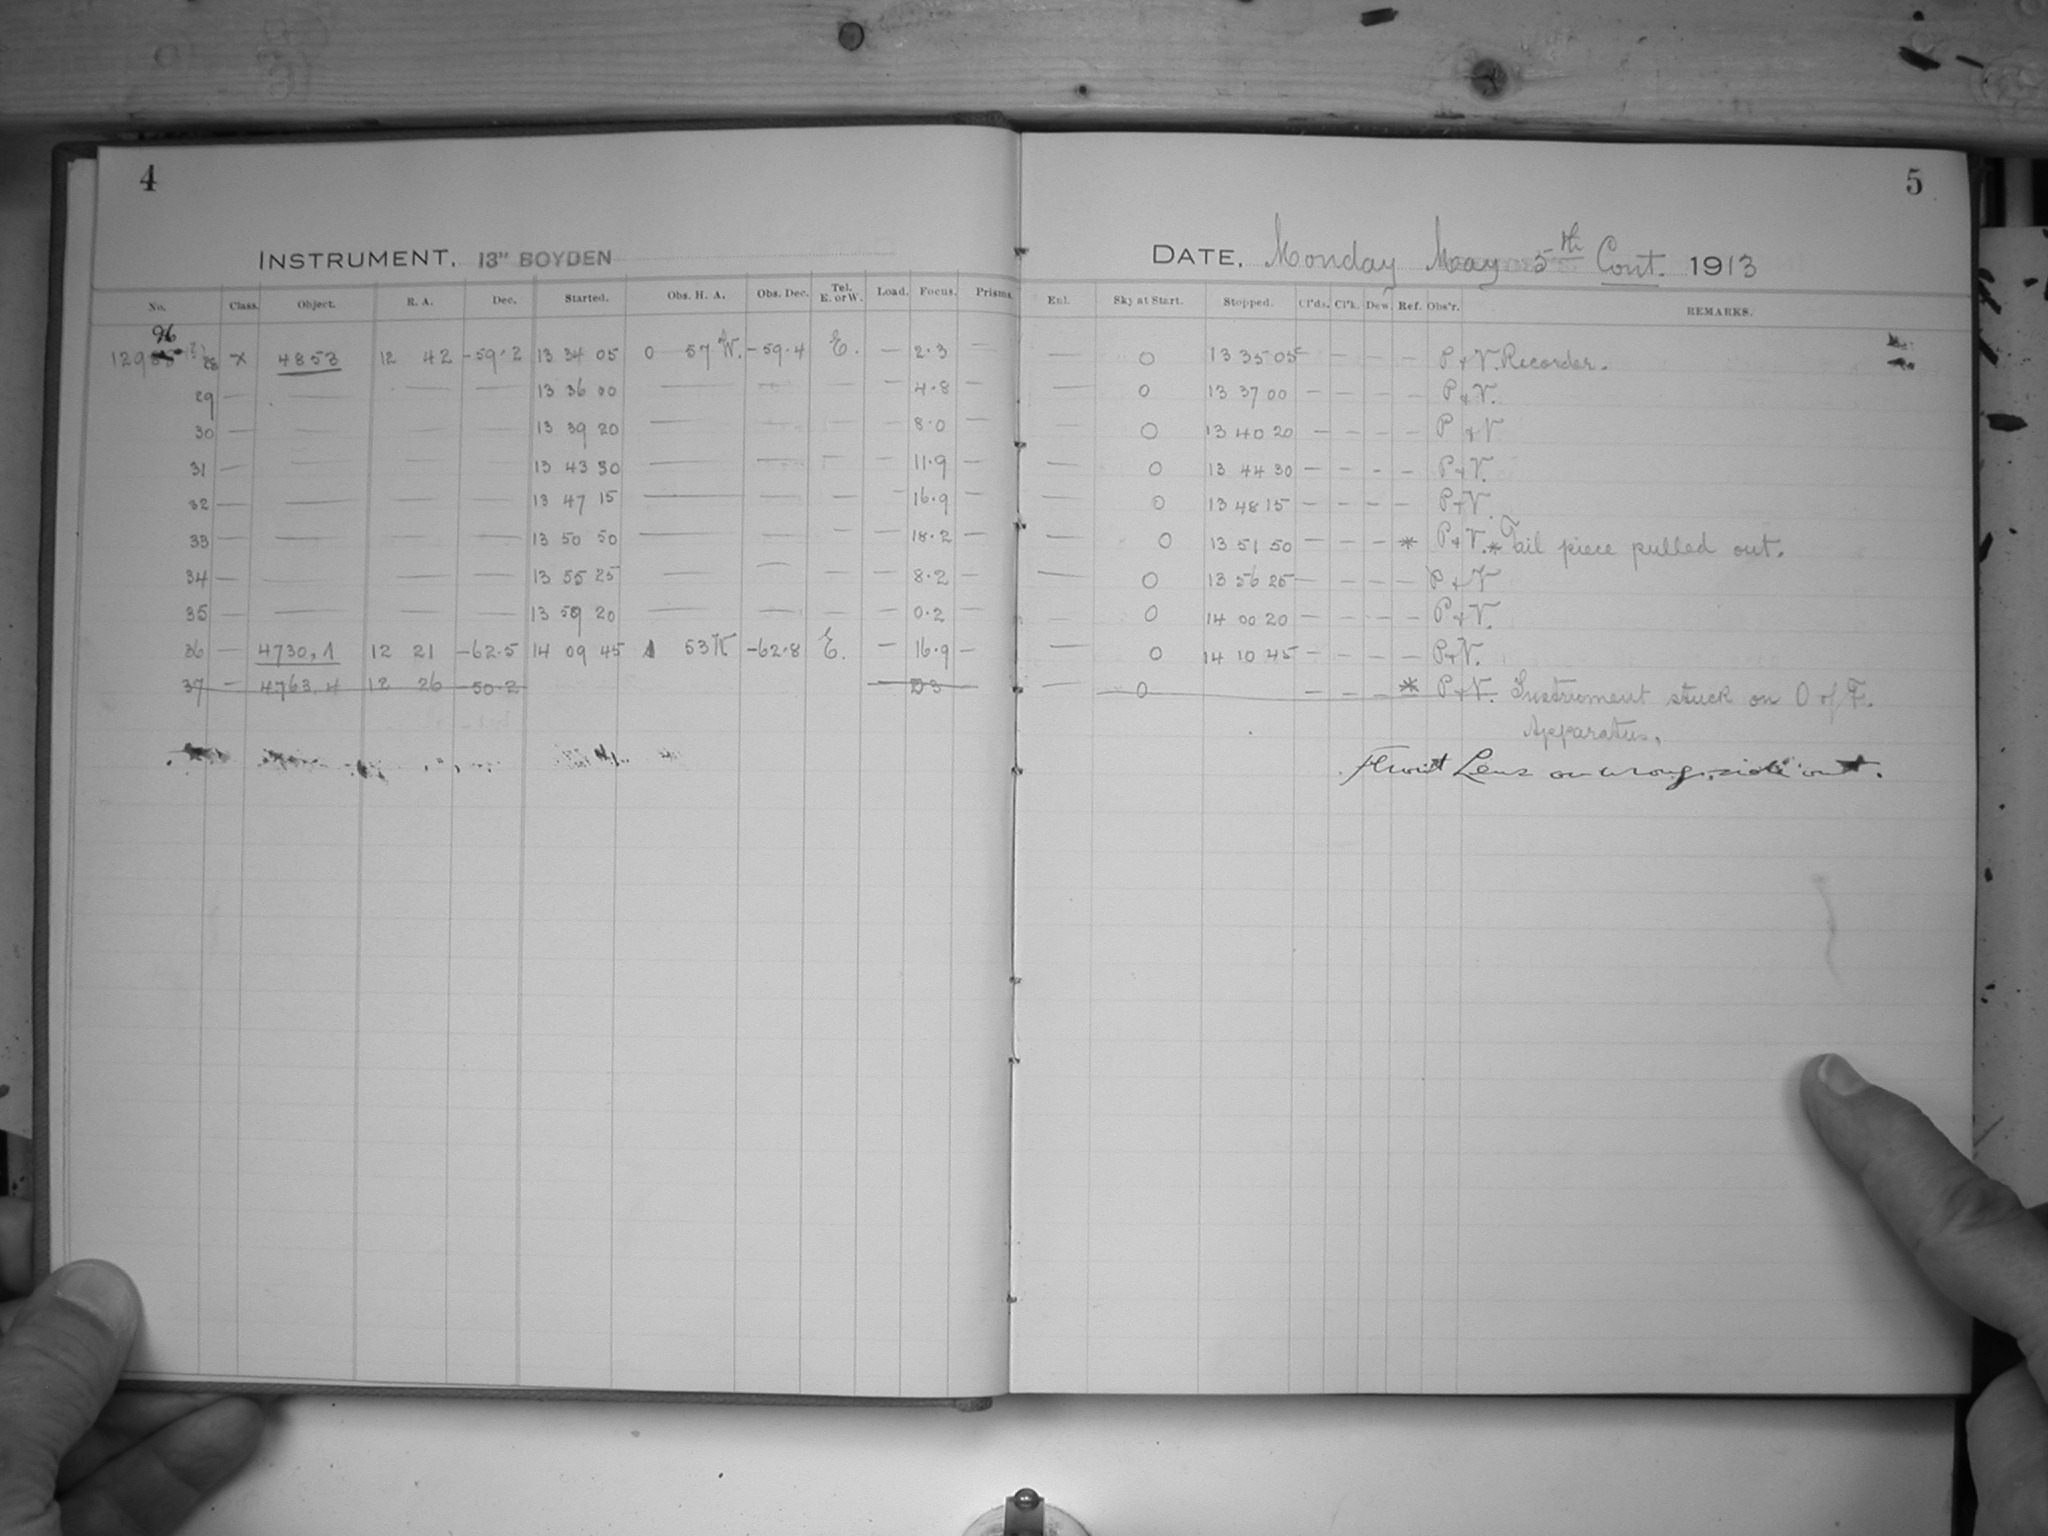 4
5
INSTRUMENT. 13" BOYDEN
DATE. Monday May 5th Cont. 1913
No. Class. Object. R. A. Dec. Started. Obs. H. A. Obs. Dec. Tel. E. or W. Load. Focus. Prisms. Enl. Sky at Start. Stopped. Cl'ds. Cl'k. Dew. Ref. Obs'r. REMARKS.
96
28 X 4853 12 42 -59.2 13 34 05 0 57 W. -59.4 E. — 2.3 — — 0 13 35 05 — — — — P & V. Recorder.
29 — — — — 13 36 00 — — — — 4.8 — — 0 13 37 00 — — — — P & V.
30 — — — — 13 39 20 — — — — 8.0 — — 0 13 40 20 — — — — P & V
31 — — — — 13 43 30 — — — — 11.9 — — 0 13 44 30 — — — — P & V.
32 — — — — 13 47 15 — — — — 16.9 — — 0 13 48 15 — — — — P & V.
33 — — — — 13 50 50 — — — — 18.2 — — 0 13 51 50 — — — * P & V. * Tail piece pulled out.
34 — — — — 13 55 25 — — — — 8.2 — — 0 13 56 25 — — — — P & V
35 — — — — 13 59 20 — — — — 0.2 — — 0 14 00 20 — — — — P & V.
36 — 4730,1 12 21 -62.5 14 09 45 1 53 W -62.8 E. — 16.9 — — 0 14 10 45 — — — — P & V.
37 — 4763,4 12 26 -50.2 — — 0 — — — * P & V. Instrument stuck on O of F.
Apparatus.
Front Lens on wrong side out.